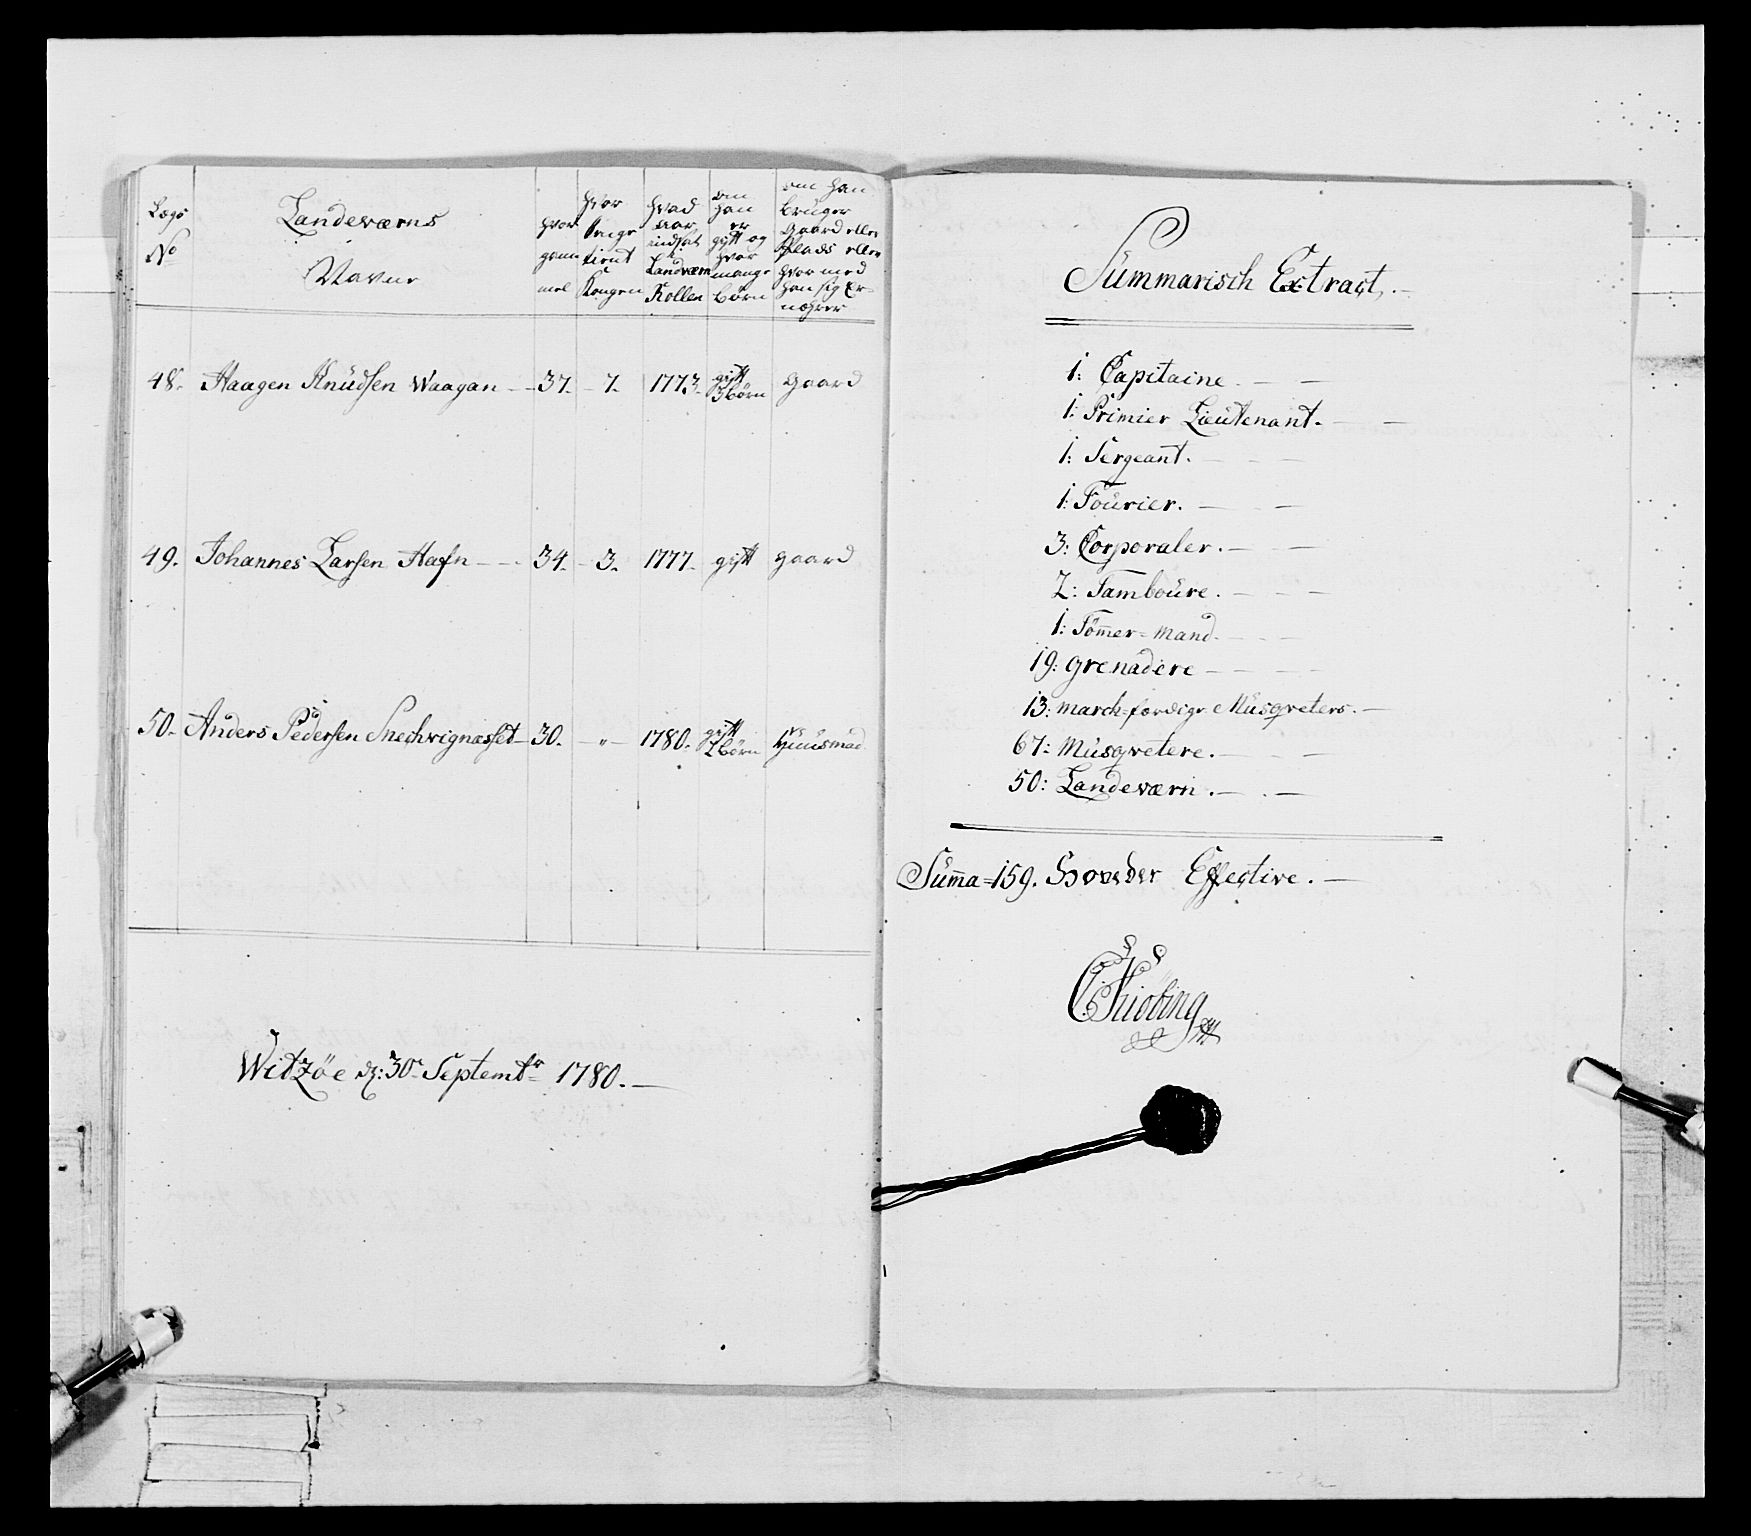 Lægs No
Landeværns Navne
hvor gammel
hvor længe tient Kongen
hvad aar indsat i Landværn Rollen
om han er gift og hvor mange Børn
om han bruger Gaard eller Plads eller hvor med han sig Ernæhrer
48. Haagen Knüdsen Waagan - 37. - 7. 1773. gift 3 børn Gaard
49. Johannes Larsen Hafn - - 34. - 3. 1777. gift gaard
50. Anders Pedersen Snechvignæsset - 30. - „ - 1780. gift 2 børn Huusmād
Witzöe d: 30 Septembr 1780. -
Summarisch Extract. -
1: Capitaine. - -
1: Primier Lieutenant. - -
1: Sergeant. - - -
1: Fourier. - - -
3: Corporaler. - -
2: Tamboure. - - -
1: Töm̄er=Mand. - - -
19: Grenadere - - - -
13: march-færdige Musqveters. -
67: Musqvetere. - - -
50: Landeværn. - . -
Sum̄a = 159. Hoveder Effective. -
Kiöbing